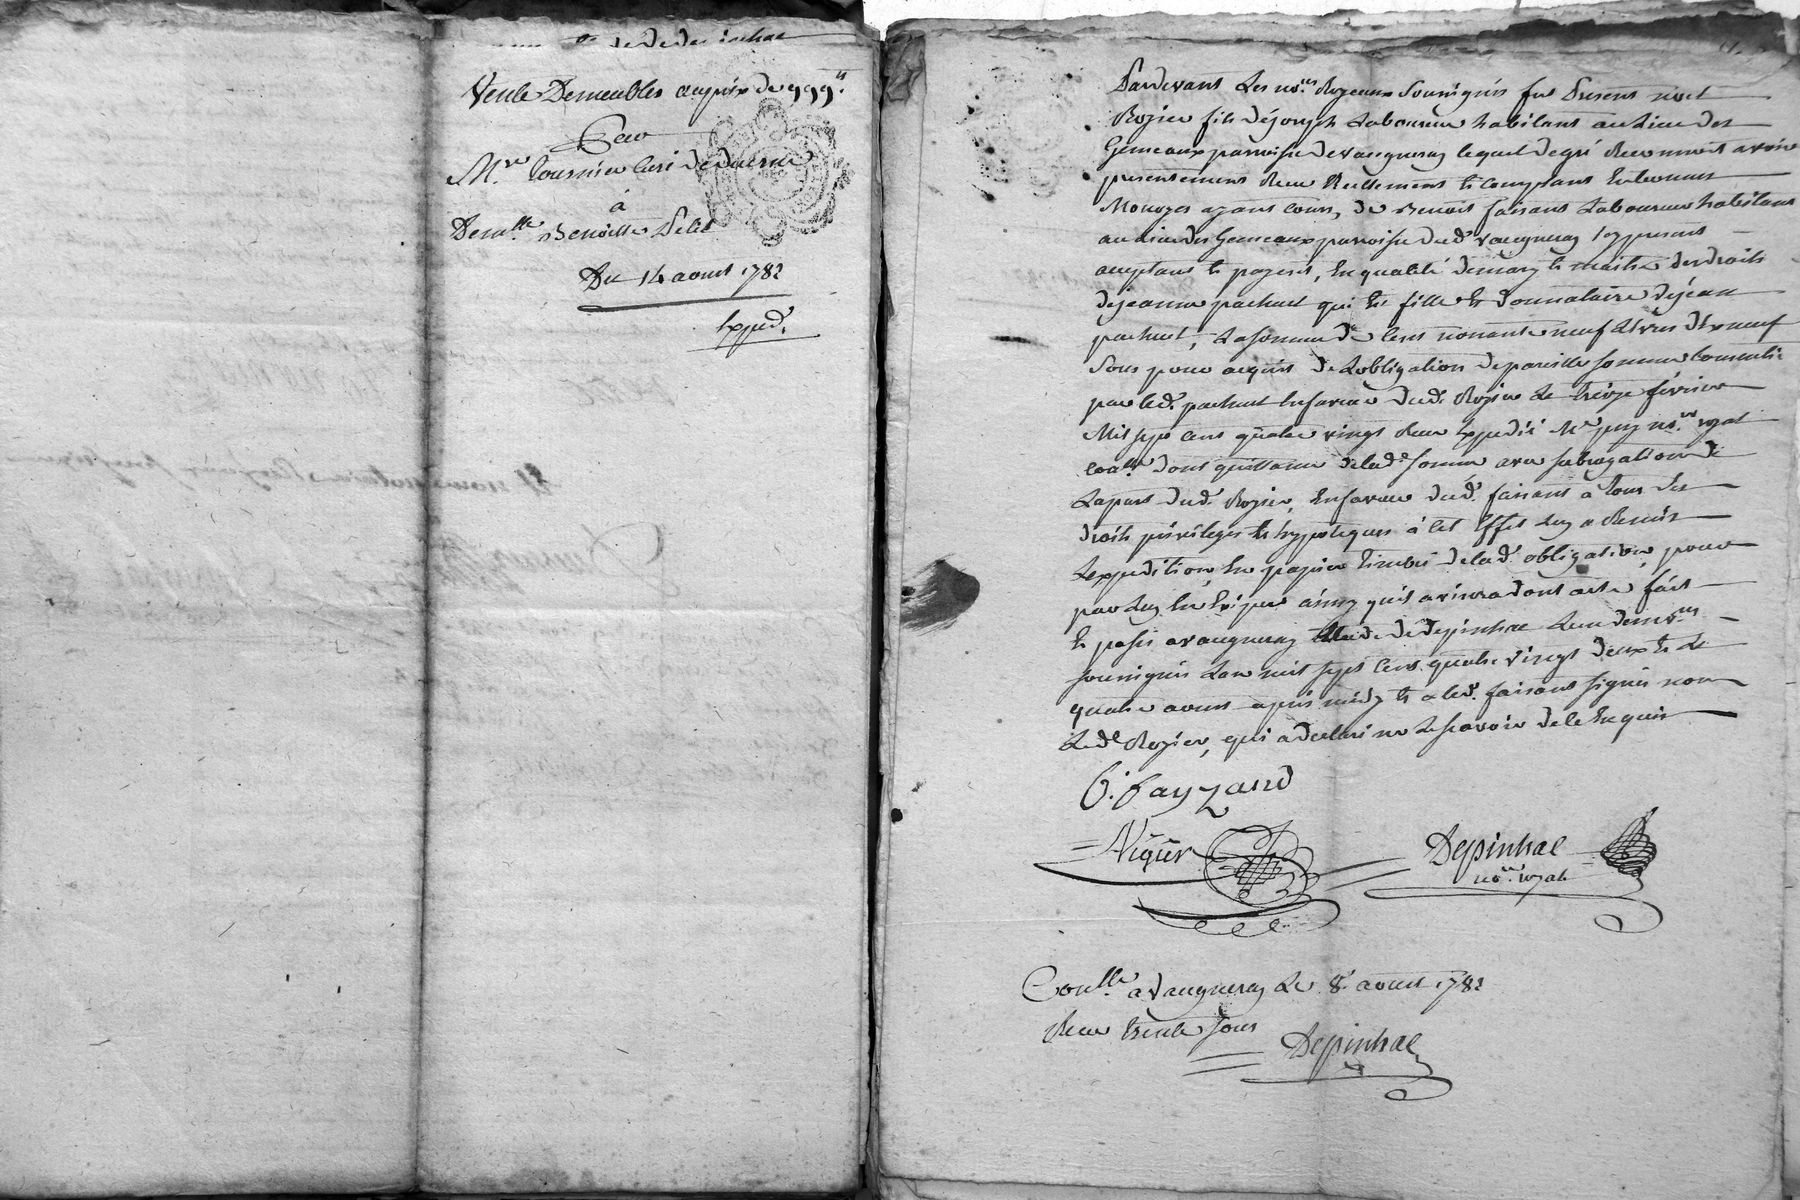 Vente Demeubles auprix de 999 ᵗᵗ
Par
Mre Tournier Curé deduerne
à
Demlle Benoitte
Du 14 aoust 1782
Expéd.
Pardevant Les nores Royeaux Soussignés fut Present
Rozier fils déjoseph Laboureur habitant aulieu des
Gemeaux parroisse devaugneray lequel degré Reconnoit avoir
presentement Receu Reellement et Comptant En bonnes
Monoyes ayant Cours, de Benoit faisant Laboureur habitant
aulieu des Gemeaux parroisse dud. vaugneray Icy present
acceptant et payent, En qualité demary et maitre des droits
dejeanne pachut qui Est fille Et donnataire dejean
pachut, Lasomme de Cent nonante neuf Livres dixneuf
Sous pour acquit de Lobligation depareille somme Consentie
par led. pachut Enfaveur dud. Rozier Le treize février
Mil sept Cent quatre vingt deux Expedié Me puy nore royal
dont quittance delad. somme avec subrogation de
Lapart dud. Rozier, Enfaveur dud. faisant à tous Ses
droits priviléges Et hyppotéques à Cet Effet Luy a Remis
Lexpedition En papier timbré delad. obligation, pour
par Luy En Exiger ainsy quil avisera dont acte fait
Et passé avaugneray Etude de depinhac Lun des nores
soussignés Lan mil sept Cent quatre vingt deux Et Le
quatre aoust après midy Et a led. faisant signé non
Led. Rozier, qui a declaré ne Le savoir de ce Enquis
B. fayzand
Viguer
Depinhac
nore royal
Conllé a Vaugneray Le 8. aoust 1782
Receu trente sous
Depinhac